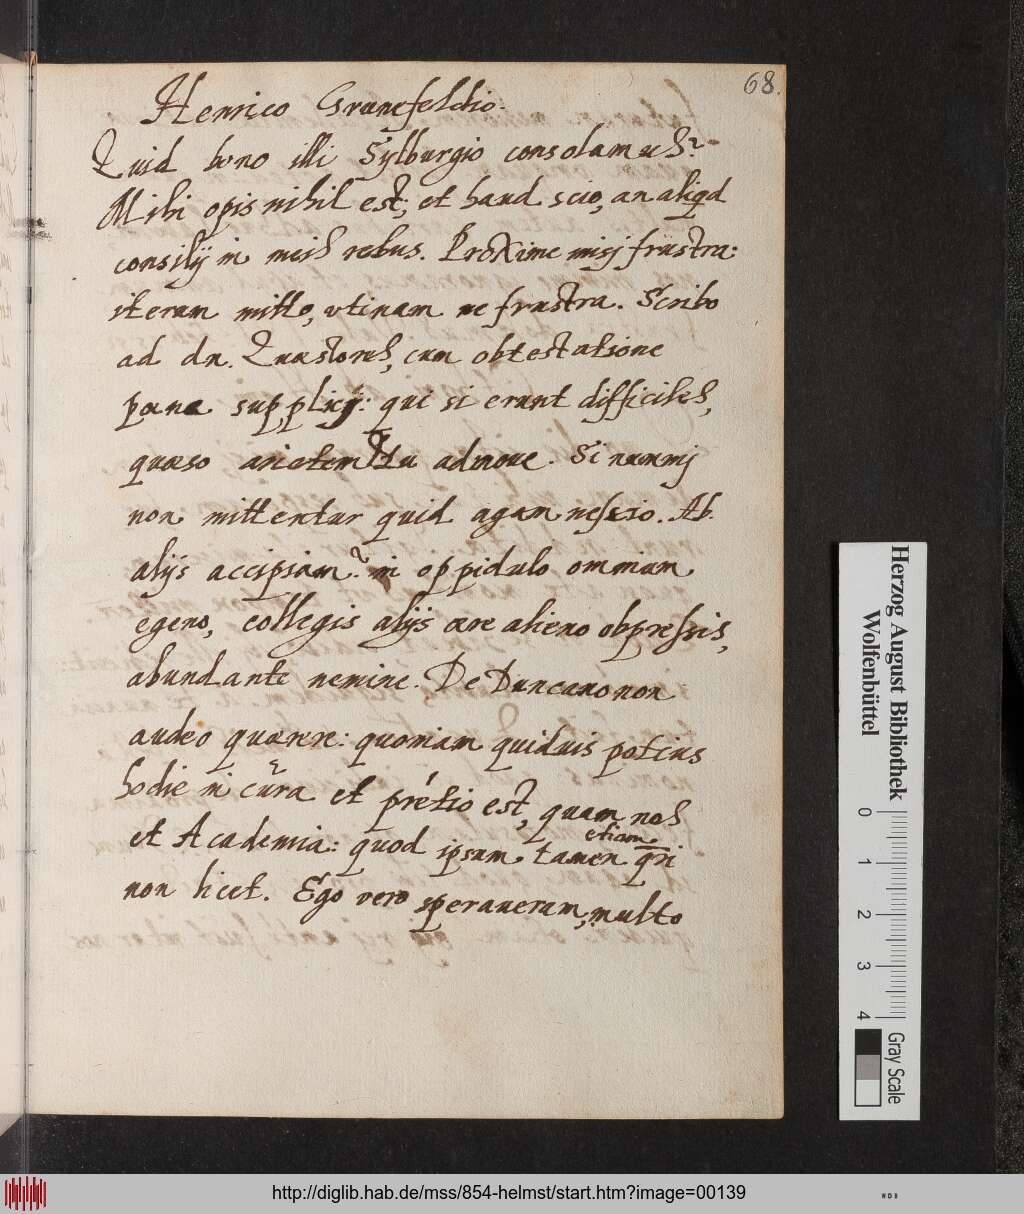 68.
Henrico Grunefeldio.
Quid bono illi Sylburgio consolamus?
Mihi opis nihil est; et haud scio, an aliqd
consilij in meis rebus. Proxime misj frustra:
iteram mitto, vtinam ne frustra. Scribo
ad dn. Quæstores, cum obtestatione
pæne supplicij: qui si erunt difficiles,
quæso arietem tu admoue. Si nummj
non mittentur quid agam nescio. Ab
alijs accipiam? in oppidulo omnium
egeno, collegis alijs ære alieno obpressis,
abundante nemine. De Duncano non
audeo quærere: quoniam quiduis potius
hodie in cura et pretio est, quam nos
et Academia: quod ipsum tamen etiam qri
non licet. Ego vero speraueram, multo
Herzog August Bibliothek
Wolfenbüttel
0 1 2 3 4
Gray Scale
http://diglib.hab.de/mss/854-helmst/start.htm?image=00139